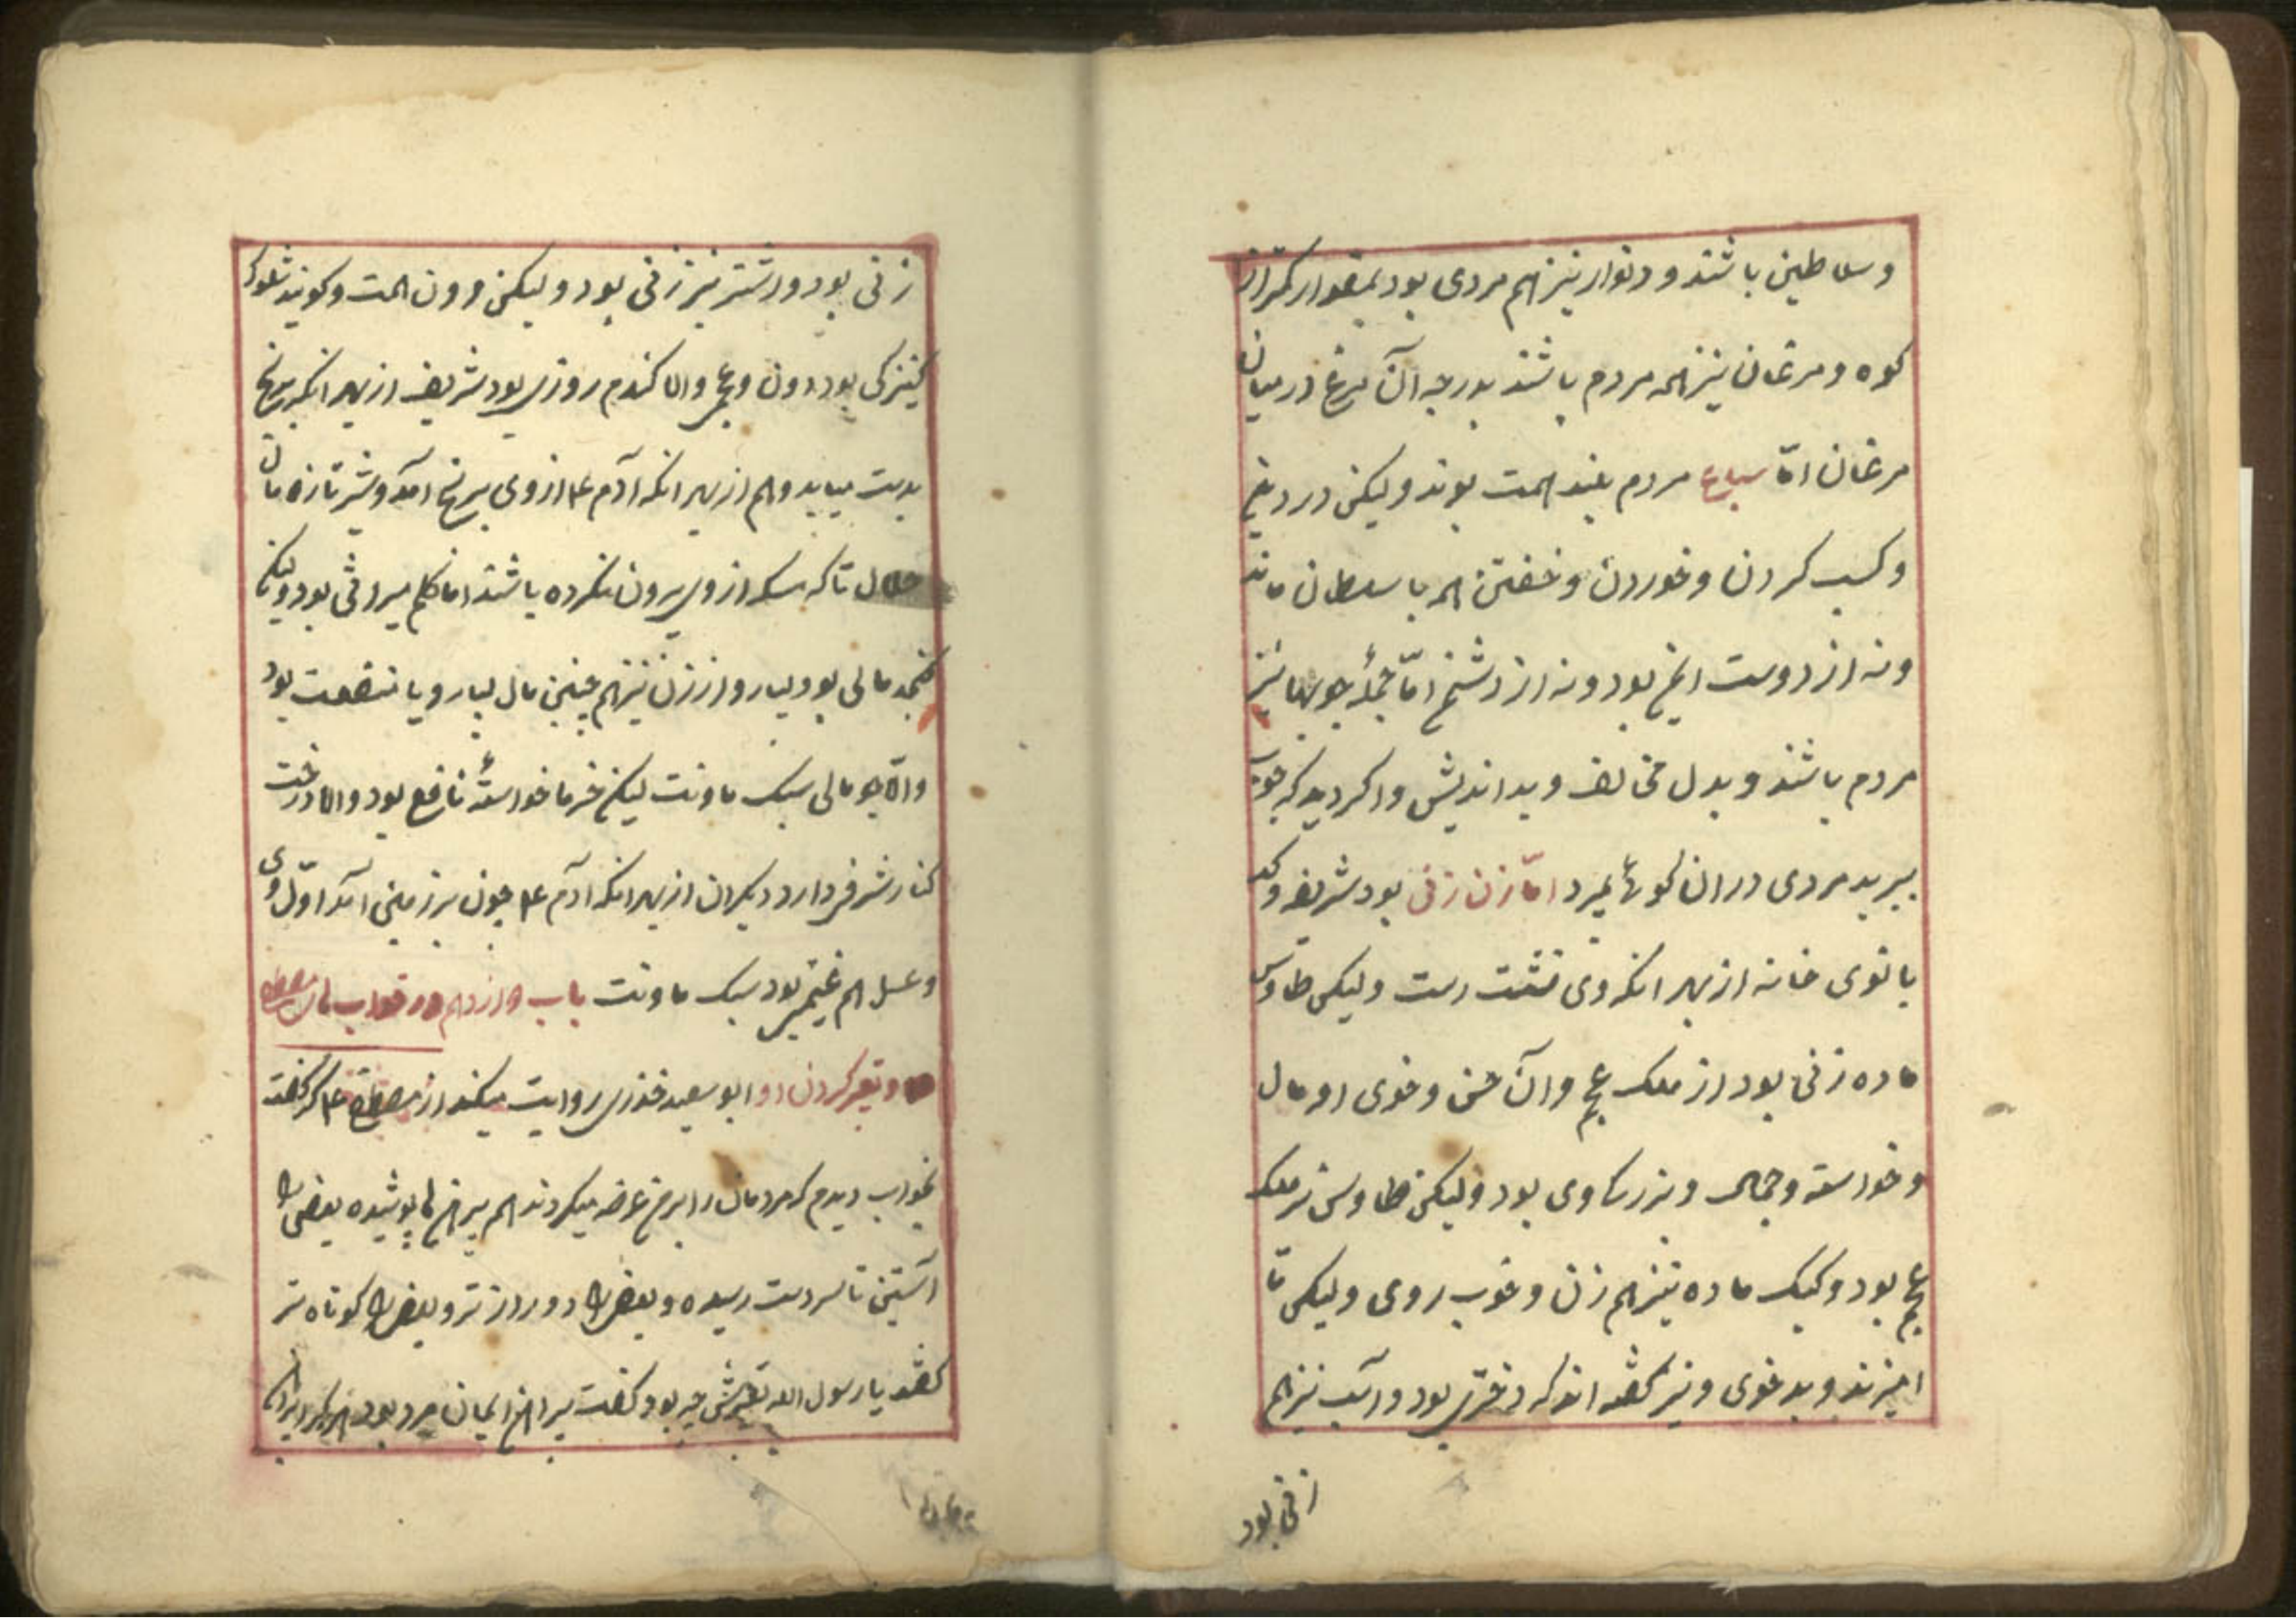 و سلاطین باشند و دیوار نیز هم مردی بود بمقدار کمتر از
کوه و مرغان نیز همه مردم باشند بدرجه آن مرغ در میان
مرغان امّا سباع مردم بلند همت بوند و لیکن در
و کسب کردن و خوردن و خفتن همه با سلطان ماند
و نه از دوست ایمن بود و نه از دشمن امّا جملهٔ چوبها نیز
مردم باشند و بدل مخالف و بداندیش و اگر دید که چوب
ببرید مردی در ان بمیرد امّا زن زنی بود شریف و
بانوی خانه از بهر انکه وی است و لیکن طاوس
ماده زنی بود از ملک عجم و آن حسن و خوی او مال
و خواسته و جمال و بزرکی وی بود و لیکن طاوس نر ملک
عجم بود و کبک ماده نیز هم زن و خوب روی و لیکن نا
امیزند و بد خوی و نیز کفته اند که دختری بود و نیز هم
زنی بود
زنی بود و نیز زنی بود و لیکن دون همت و کویند
کنیزکی بود دون و عجمی و اما کندم روزی بود شریف از بهر انکه برنج
بدست میاید و هم از بهر انکه آدم ع از وی برنج آمد و نیز تا زه مال
حلال تا که از وی بیرون نکرده باشند اما بود و لیکن
کنجد مالی بود بسیار و ارزن نیز هم چنین مال بسیار و با منفعت بود
و امّا جو مالی سبک ماونت لیکن خرما خواستهٔ نافع بود و اما درخت
کنار شرف دارد دیکران از بهر انکه ادم ع چون بر زمین آمد اوّل وی
و عسل هم غنیمتی بود سبک ماونت باب دوازدهم در خواب مصطفی
و تعبیر کردن او ابو سعید خذری روایت میکند از مصطفی ع که کفت
بخواب دیدم که مردمان را بر من عرضه میکردند همه پیراهن ها پوشیده بعضی را
آستین تا سر دست رسیده و بعضی را دور دراز تر و بعضی را کوتاه تر
کفتند یا رسول الله تعبیرش چه بود کفت پیراهن ایمان مرد بود هر که را